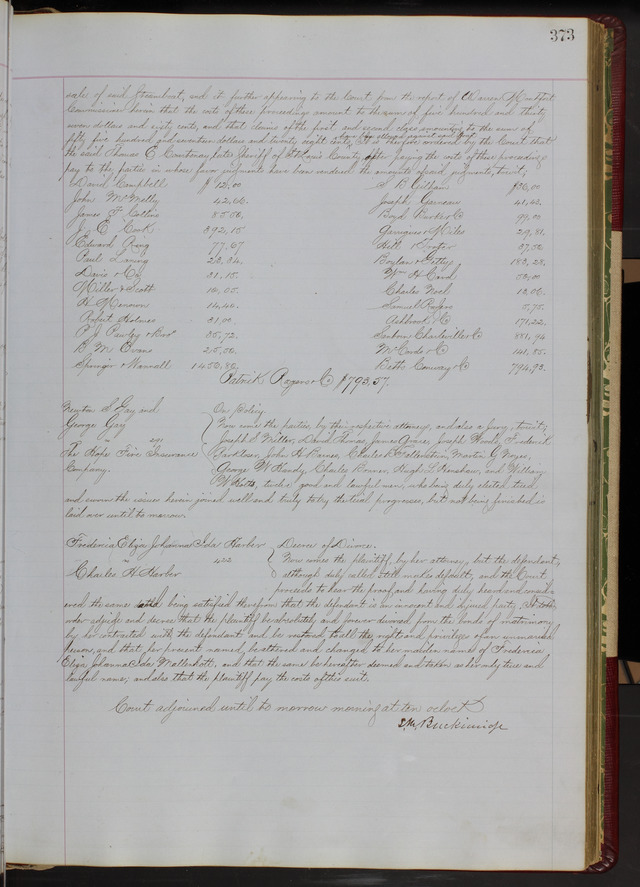 373
sales of said Steamboat, and it further appearing to the Court from the report of
Commissioner herein that the costs of these proceedings amount to the sum of five hundred and thirty
seven dollars and sixty cents, and that claims of the first and second class amounting to the sum of
fifty five hundred and seventeen dollars and twenty eight cents, It is therefore ordered by the Court that
the said Thomas C late Sheriff of St Louis County, after paying the costs of these proceedings
pay to the parties in whose favor judgments have been rendered the amounts of said judgments, to wit;
David Campbell $ 12,00 S B Gilham $36,00
John McNelly 42,66. Joseph Garneau 41,42.
James F Collins 85,50. Boyd Co 99,00
J. E. Cook 392,15 Garrigues & Miles 29,81.
Edward Ring 77,67 Hill 37,50
Paul 23,34. Boylan & 183,23.
Davis & Co 31,15. Wm H Card 52,00
Miller & Scott 16,05. Charles Noel 13,06.
H 14,46. Samuel Rogers 5,75.
Robert Holmes 31,00. Ashbrook & Co 171,22.
P J Pawley & Bro 35,72. Sanborn Co 881,94
B M Evans 215,50. McCords & Co 141,85.
Springer & 1450,86, Betts Conway & Co 794,93.
Patrick Rogers & Co $793,57.
Newton S Gay and On Policy.
George Gay Now come the parties, by their respective attorneys, and also a Jury, to wit;
vs Joseph S Miller, David Thomas, James Grace, Joseph Woods, Frederick
The Hope Fire Insurance John H Barnes, Charles Martin G Noyes,
Company. George W Handy, Charles Bonner, Hugh L Henshaw, and William
W twelve good and lawful men, who being duly elected, tried
and sworn the issues herein joined well and truly to try the trial progresses, but not being finished is
laid over until to morrow.
Frederica Eliza Johanna Ida Harber Decree of Divorce.
vs Now comes the plaintiff by her attorney, but the defendant,
Charles H Harber although duly called still makes default, and the Court
proceeds to hear the proof, and having duly heard and consid-
ered the same and being satisfied therefrom that the defendant is an innocent and injured party,
order adjudge and decree that the plaintiff be absolutely and forever divorced from the bonds of matrimony
by her contracted with the defendant and be restored to all the rights and privileges of an unmarried
person, and that her present name be altered and changed to her maiden name of Frederica
Eliza Johanna Ida and that the same be hereafter deemed and taken as her only true and
lawful name; and also that the plaintiff pay the costs of this suit.
Court adjourned until to morrow morning at ten oclock